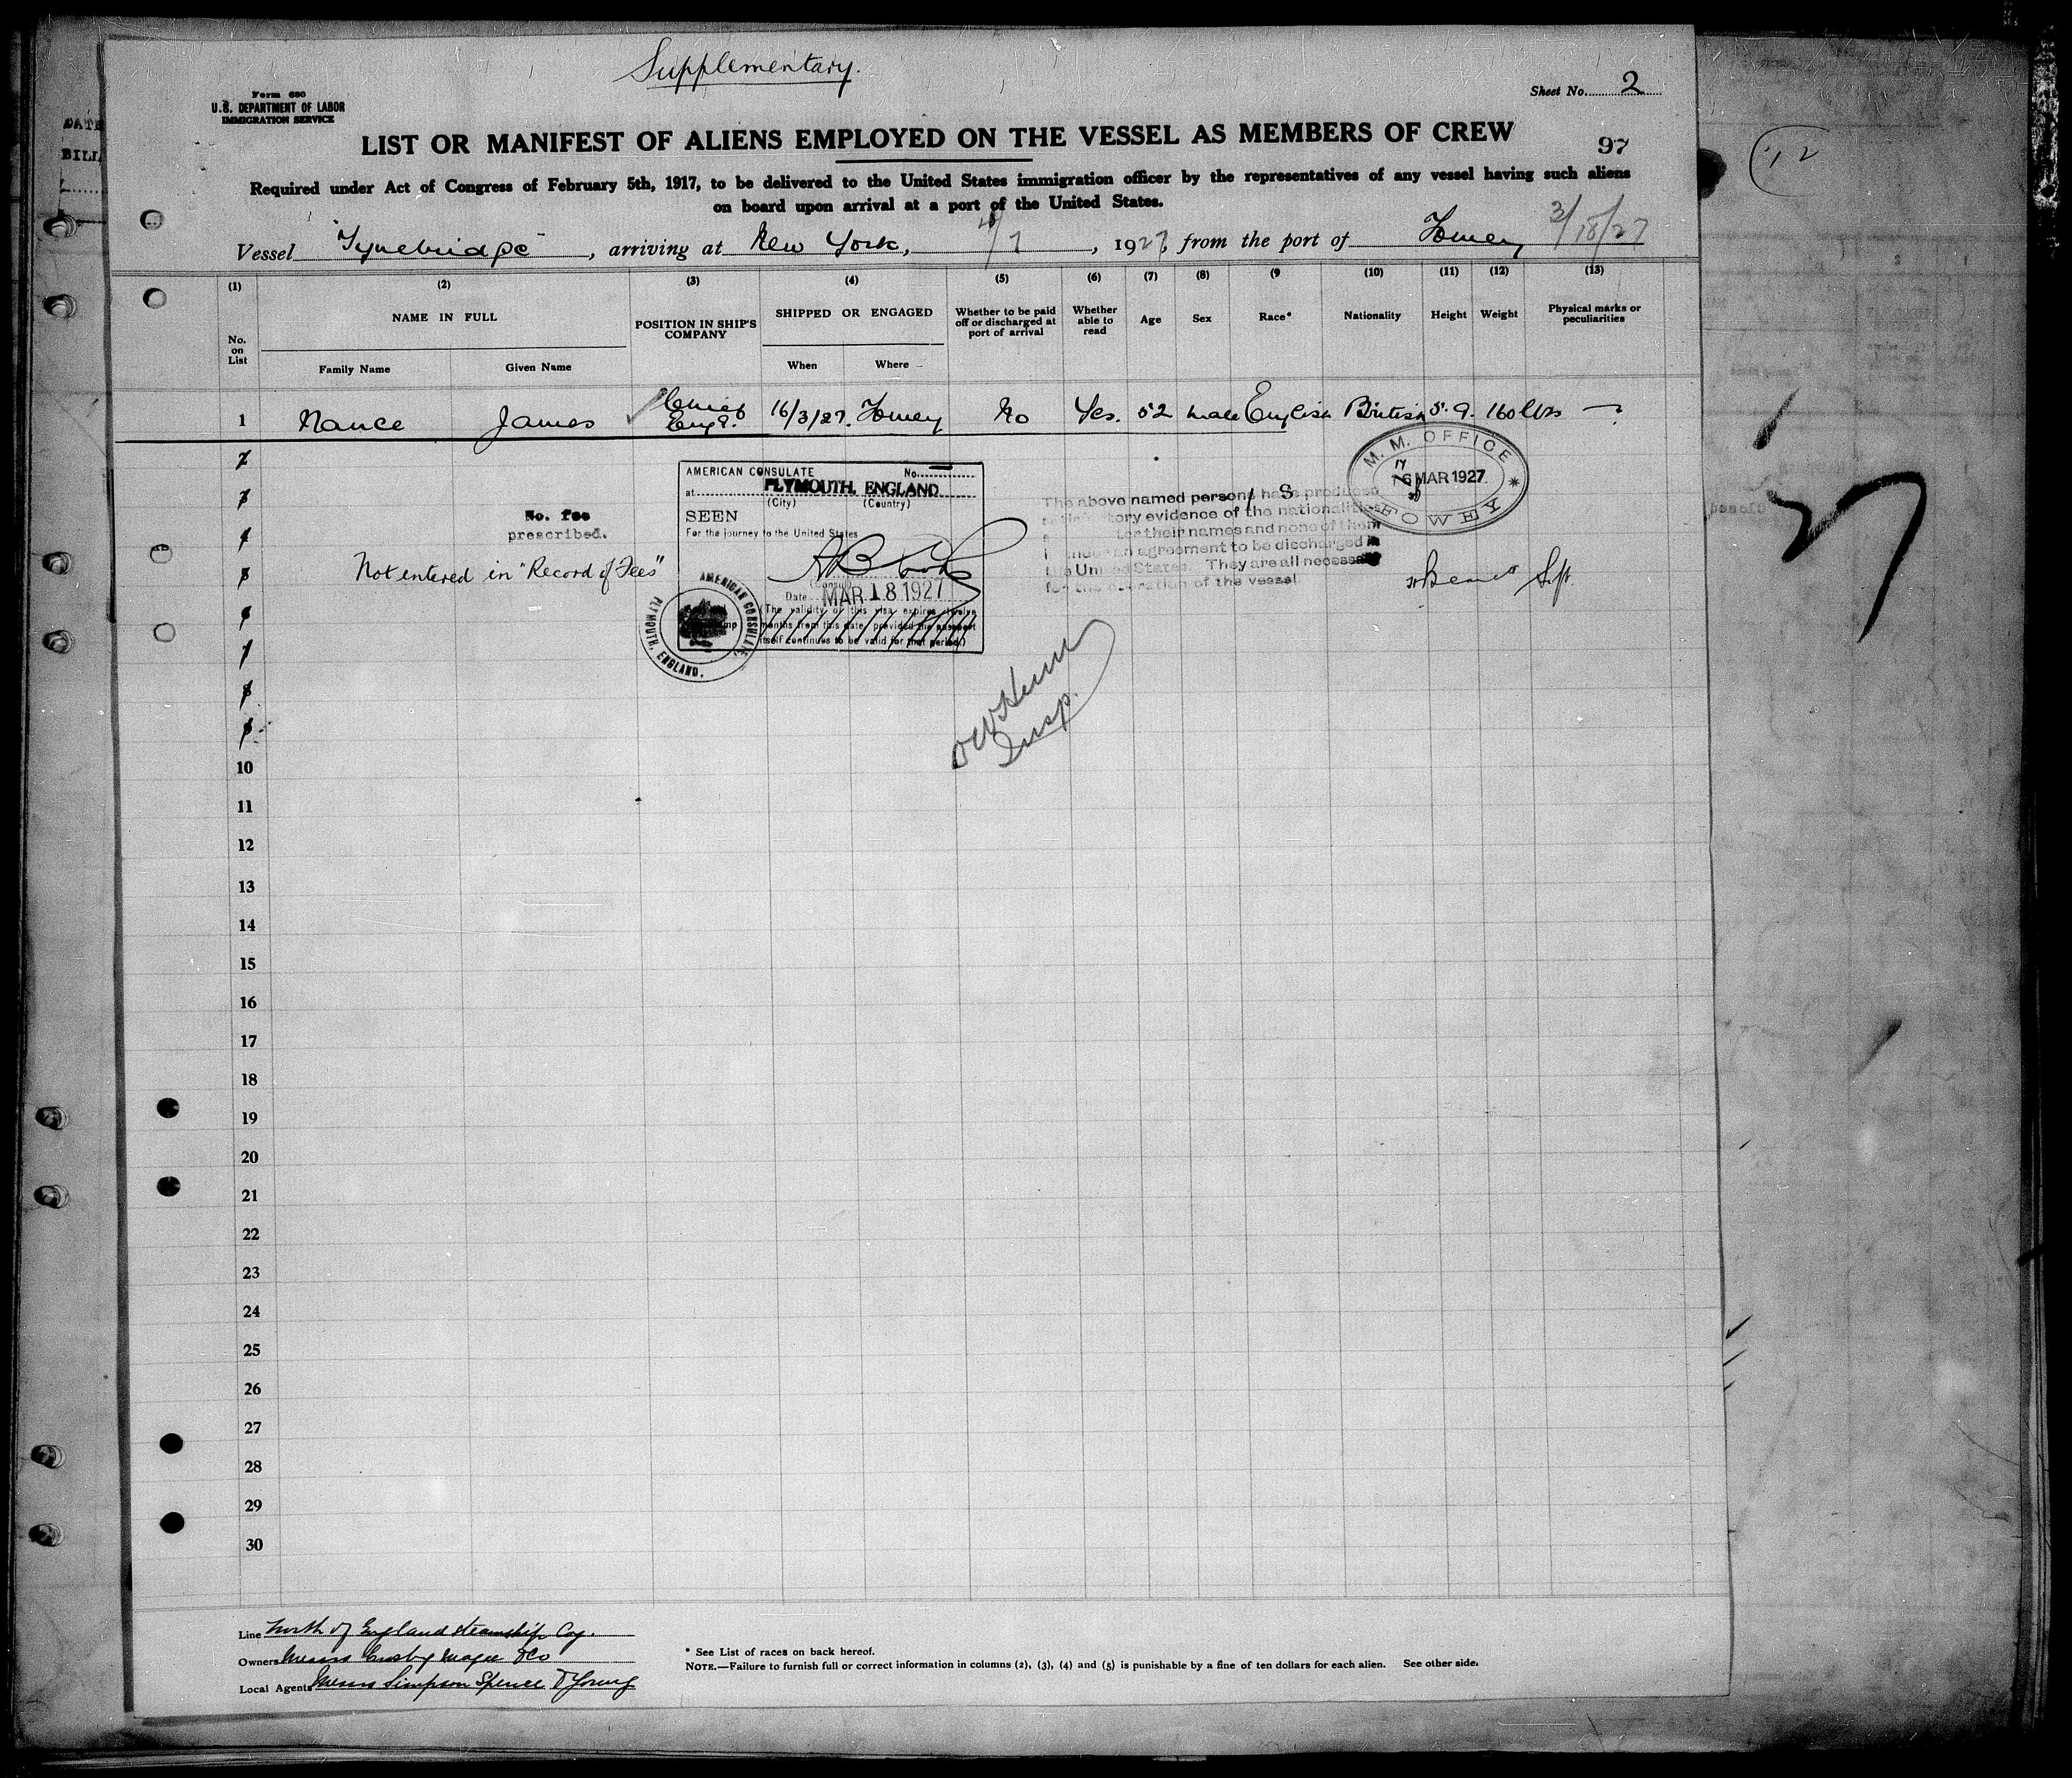 Supplementary.
Form 680
U.S. DEPARTMENT OF LABOR
IMMIGRATION SERVICE
Sheet No. 2
LIST OR MANIFEST OF ALIENS EMPLOYED ON THE VESSEL AS MEMBERS OF CREW
97
Required under Act of Congress of February 5th, 1917, to be delivered to the United States immigration officer by the representatives of any vessel having such aliens
on board upon arrival at a port of the United States.
Vessel "Tynebridge", arriving at New York, 4/7, 1927, from the port of Fowey 3/18/27
(1) (2) (3) (4) (5) (6) (7) (8) (9 (10) (11) (12) (13)
No. on List
NAME IN FULL
Family Name Given Name
POSITION IN SHIP'S COMPANY
SHIPPED OR ENGAGED
When Where
Whether to be paid off or discharged at port of arrival
Whether able to read
Age Sex Race* Nationality Height Weight
Physical marks or peculiarities
1 Nance James Chief Engr. 16/3/27. Fowey No Yes. 52 male English British 5.9. 160 lbs —
2
3
4
5
6
7
8
9
10
11
12
13
14
15
16
17
18
19
20
21
22
23
24
25
26
27
28
29
30
No. fee
prescribed.
Not entered in "Record of Fees"
AMERICAN CONSULATE No.
at PLYMOUTH, ENGLAND
(City) (Country)
SEEN
For the journey to the United States
(Consul)
Date MAR 18 1927
(The validity of this visa expires twelve
months from this date provided the passport
itself continues to be valid for that period.)
AMERICAN CONSULATE,
PLYMOUTH, ENGLAND.
The above named person has produced
satisfactory evidence of the nationalities
their names and none of them
under an agreement to be discharged in
the United States. They are all necessary
for the operation of the vessel
M. M. OFFICE
MAR 1927
FOWEY
Insp.
Line North of England Steamship Coy.
Owners Messrs Crosby Magee & Co
Local Agents Messrs Simpson Spence & Young
* See List of races on back hereof.
NOTE.—Failure to furnish full or correct information in columns (2), (3), (4) and (5) is punishable by a fine of ten dollars for each alien. See other side.
DATE
12